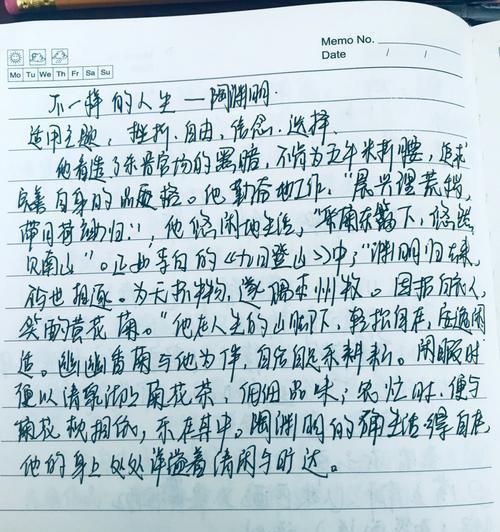 Memo No.
Date / /
Mo Tu We Th Fr Sa Su
不一样的人生——陶渊明.
适用主题：挫折.自由.信念.选择.
他看透了东晋官场的黑暗，不肯为五斗米折腰，追求
完善自身的品格。他勤奋地工作，“晨兴理荒秽，
带月荷锄归”；他悠闲地生活，“采菊东篱下，悠然
见南山”。正如李白的《九日登山》中：“渊明归去来，
不与世相逐。为无杯中物，遂偶本州牧。因招白衣人，
笑酌黄花菊。”他在人生的山脚下，轻松自在，安逸闲
适。幽幽香菊与他为伴，自给自足。闲暇时
便以清泉沏上菊花茶，细细品味；农忙时，便与
菊花相依，乐在其中。陶渊明的生活得自在
他的身上处处洋溢着清闲与旷达。